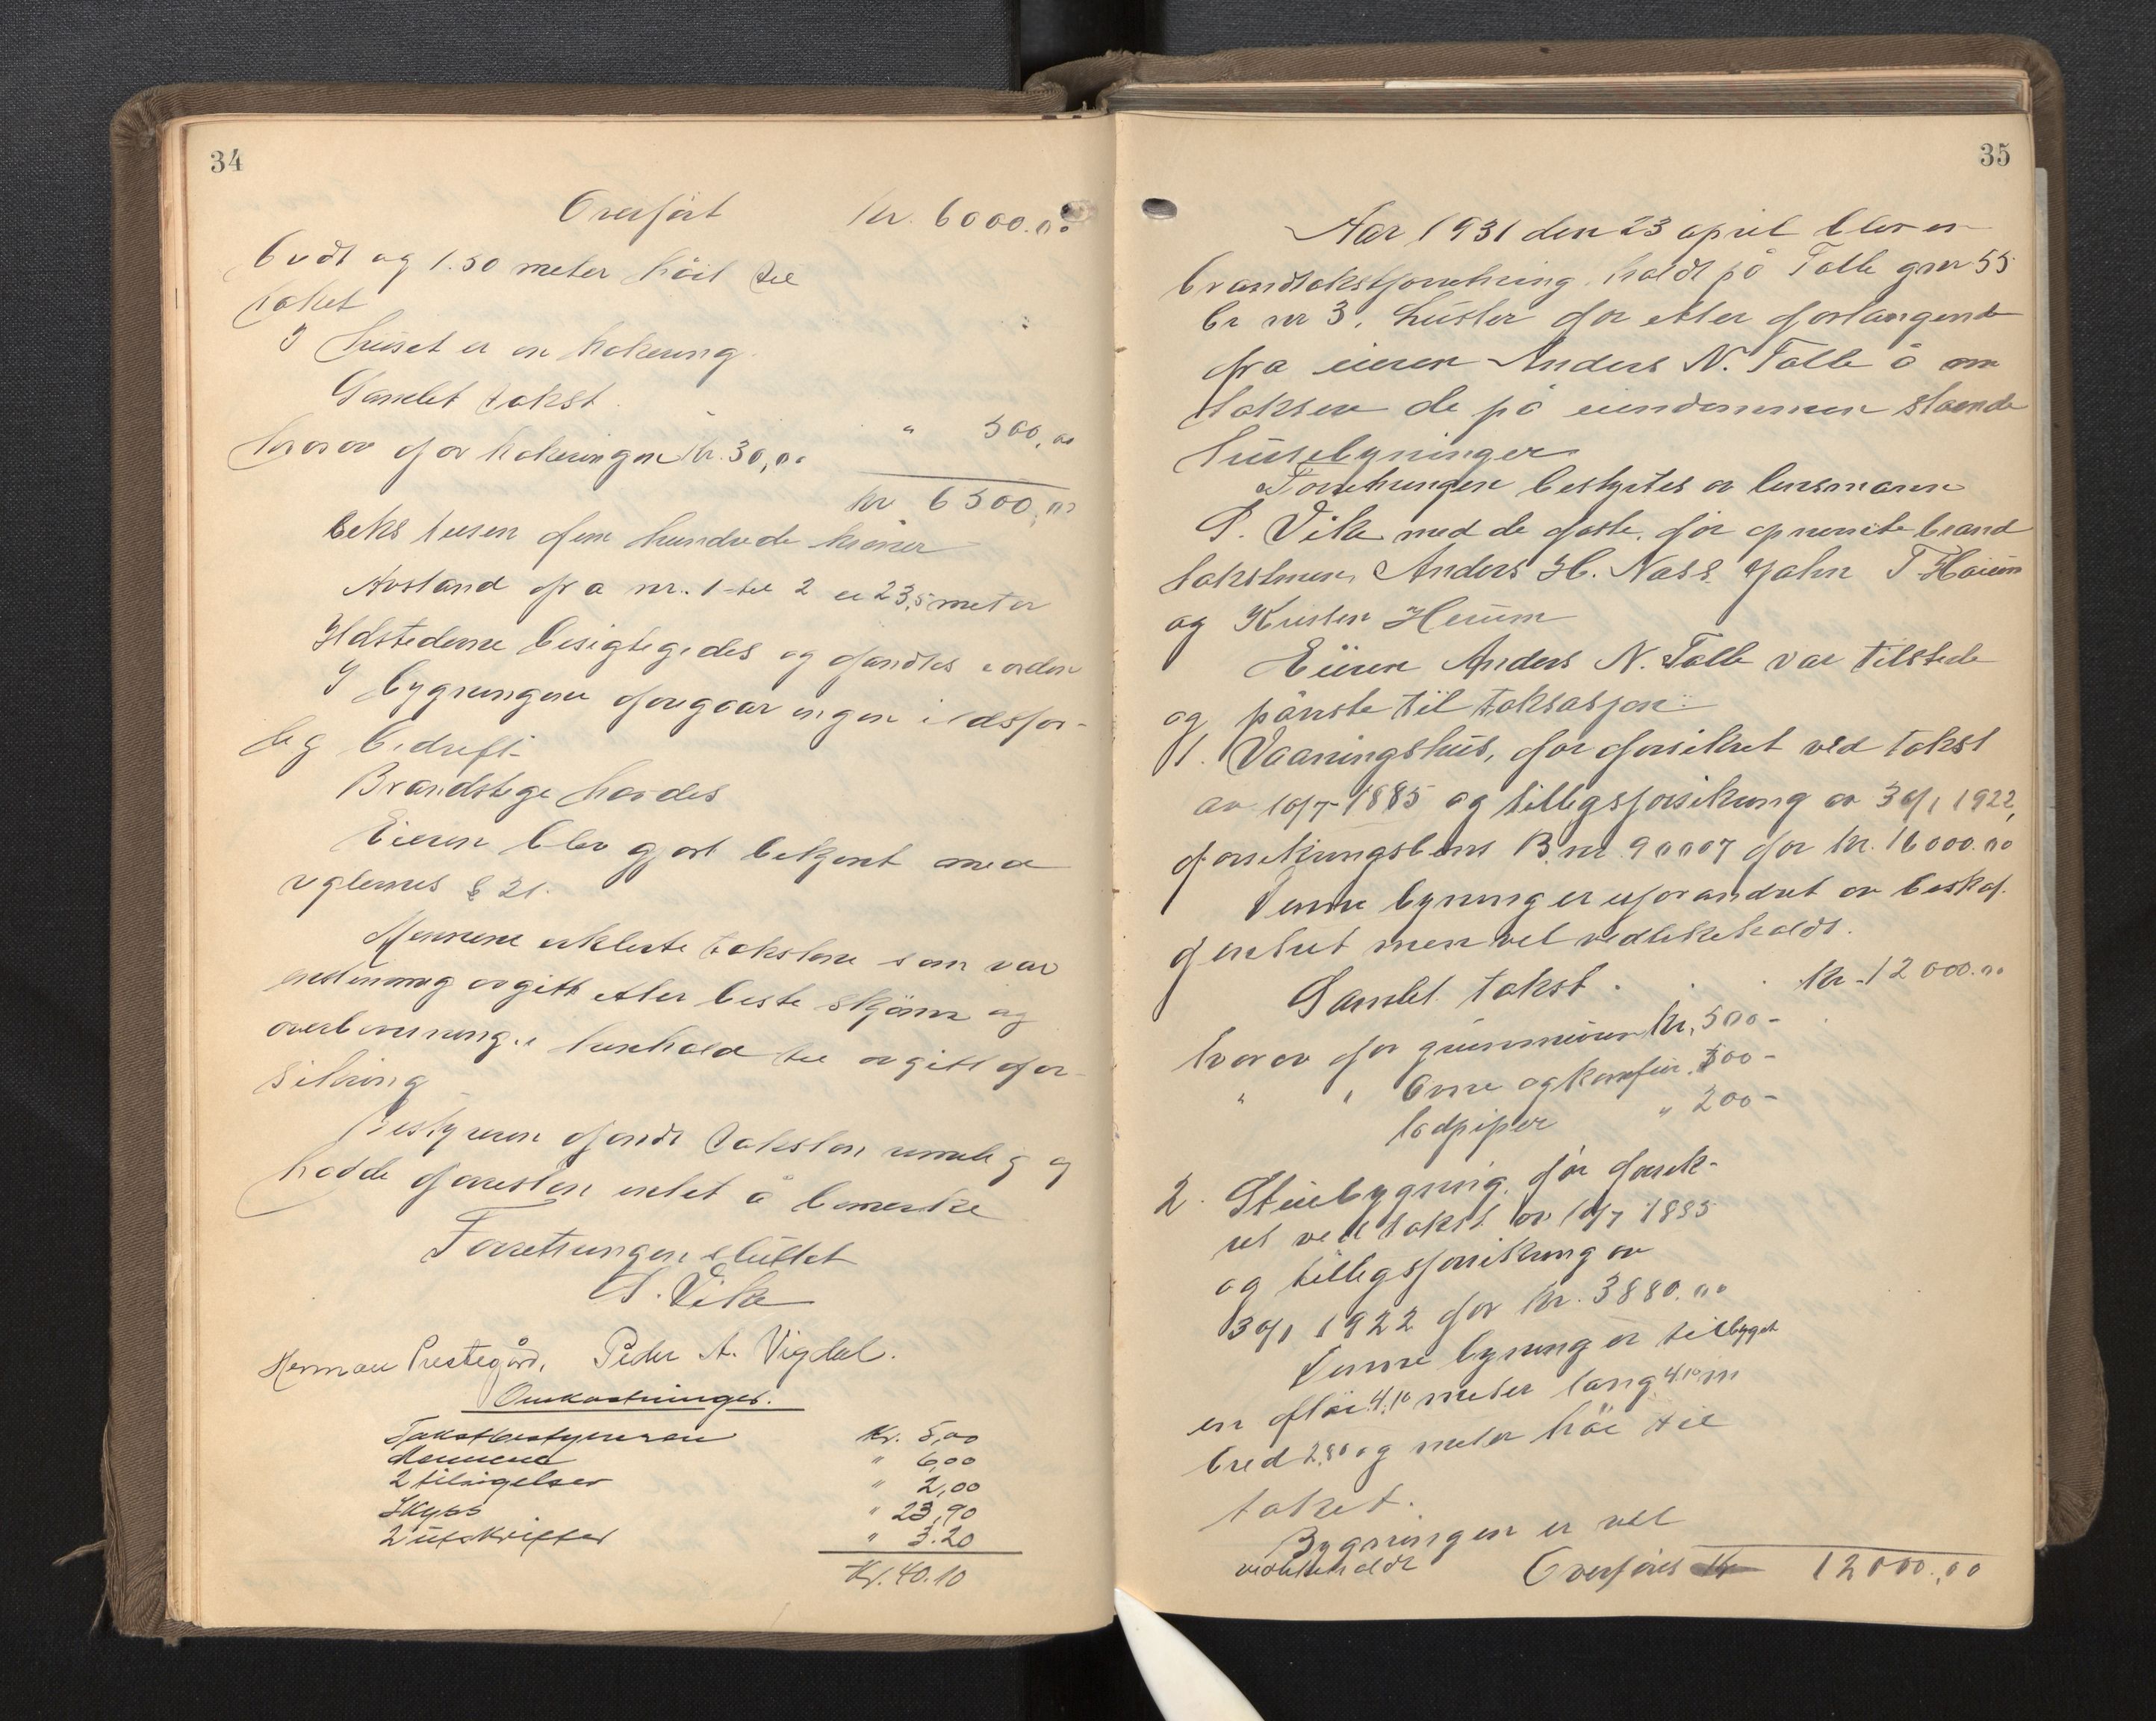 34
Overført Kr. 6000.00
bredt og 1.50 meter höit til
taket
I huset er en bakerovn
Samlet takst
" 500,00
hvorav for Kr. 30,00
kr 6500,00
Seks tusen fem hundrede kroner
Avstand fra nr. 1 til 2 er 23,5 meter
Ildstederne besigtigedes og fandtes i orden
I bygningene foregaar ingen ildsfar-
lig bedrift
Brandstige havdes
Eieren blev gjort bekjent med
reglernes § 21.
Mennene erklerte takstene som var
enstemmig avgitt etter beste skjönn og
overbevisning i henhold til avgitt for-
sikring
Bestyreren fandt taksten rimelig og
hadde forresten intet å bemerke
Forretningen sluttet
S. Vike
Herman Prestegård, Peder A. Vigdal.
Omkostninger.
Takstbestyreren Kr. 5,00
Mennene " 6,00
2 tilsigelser " 2,00
Skyss " 23,90
2 utskrifter " 3.20
Kr. 40.10
35
Aar 1931 den 23 april blev en
brandtakstforretning holdt på Talle gnr 55
br nr 3, Luster for etter forlangende
fra eieren Anders N. Talle å om
taksere de på eiendommen staaende
husebygninger
Forretningen bestyrtes av lensmann
S. Vike med de faste, før opnevnte brand
takstmenn Anders H. Næss John T
og Kristen Heium
Eieren Anders N. Talle var tilstede
og påviste til taksasjon:
1. Vaaningshus, før forsikret ved takst
av 10/7 1885 og tilleggsforsikring av 30/1 1922,
forsikringsbevis B. nr. 90007 for kr. 16000.00
Denne bygning er uforandret av beskaf-
fenhet men vel vedlikeholdt.
Samlet takst . . . kr 12000.00
hvorav for grunnmuren kr. 500-
" " Ovne og komfur 300-
ladpiper " 200-
2. Stuebygning, før forsik-
ret ved takst av 10/7 1885
og tilleggsforsikring av
30/1 1922 for kr. 3880.00
Denne bygning er tilbygget
en flöi 4,10 meter lang 4.10 m
bred 2,80 og meter höi til
taket.
Bygningen er vel
vedlikeholdt Overføres kr 12000.00